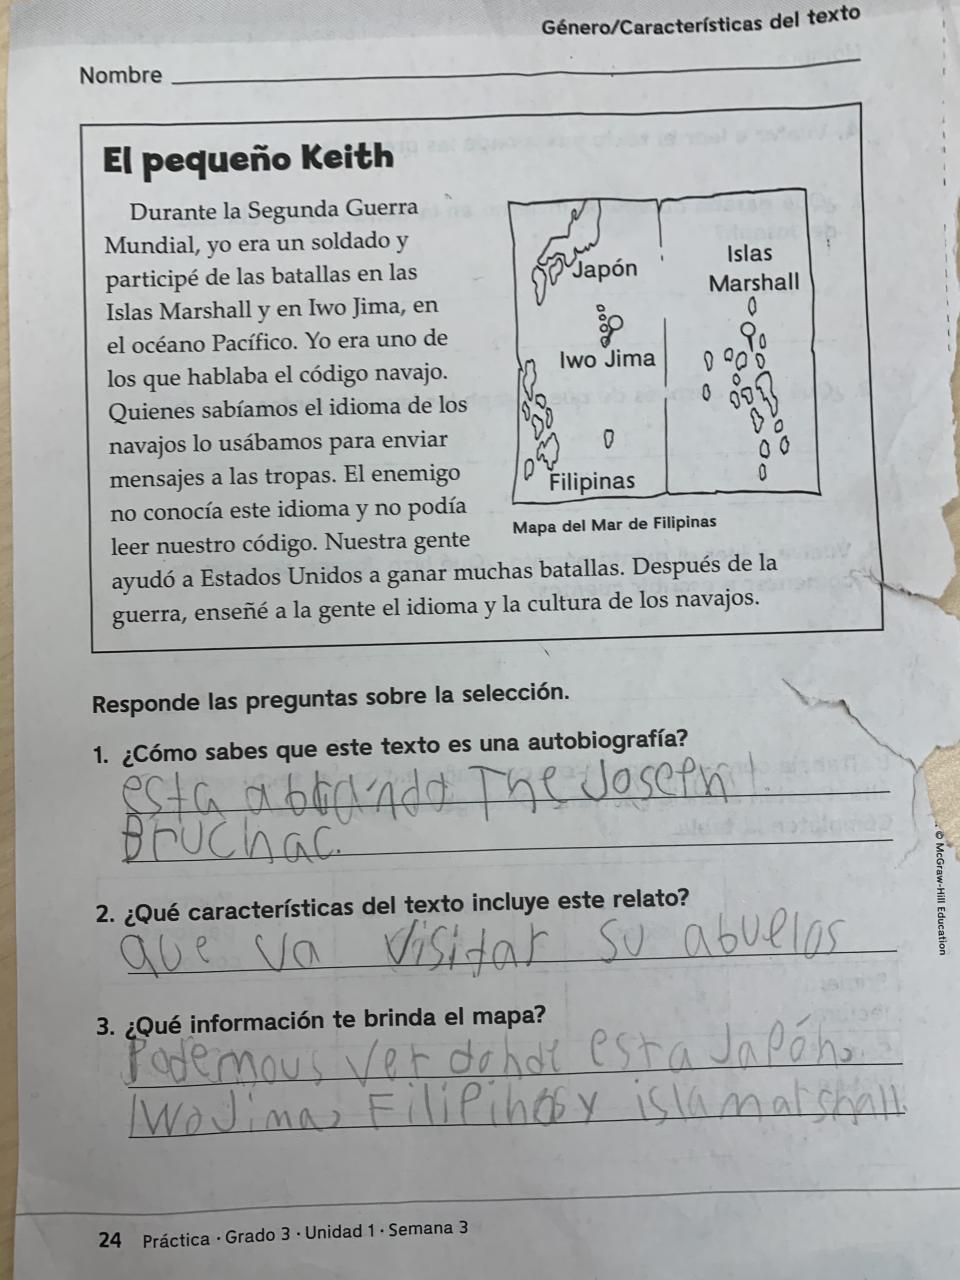 Género/Características del texto
Nombre
El pequeño Keith
Durante la Segunda Guerra
Mundial, yo era un soldado y
participé de las batallas en las
Islas Marshall y en Iwo Jima, en
el océano Pacífico. Yo era uno de
los que hablaba el código navajo.
Quienes sabíamos el idioma de los
navajos lo usábamos para enviar
mensajes a las tropas. El enemigo
no conocía este idioma y no podía
leer nuestro código. Nuestra gente
ayudó a Estados Unidos a ganar muchas batallas. Después de la
guerra, enseñé a la gente el idioma y la cultura de los navajos.
Japón
Islas
Marshall
Iwo Jima
Filipinas
Mapa del Mar de Filipinas
Responde las preguntas sobre la selección.
1. ¿Cómo sabes que este texto es una autobiografía?
esta The Joseph
Bruchac.
2. ¿Qué características del texto incluye este relato?
que va visitar su abuelos
3. ¿Qué información te brinda el mapa?
Podemous ver donde esta Japón,
Iwo Jima, Filipinas y isla marshall.
© McGraw-Hill Education
24 Práctica · Grado 3 · Unidad 1 · Semana 3